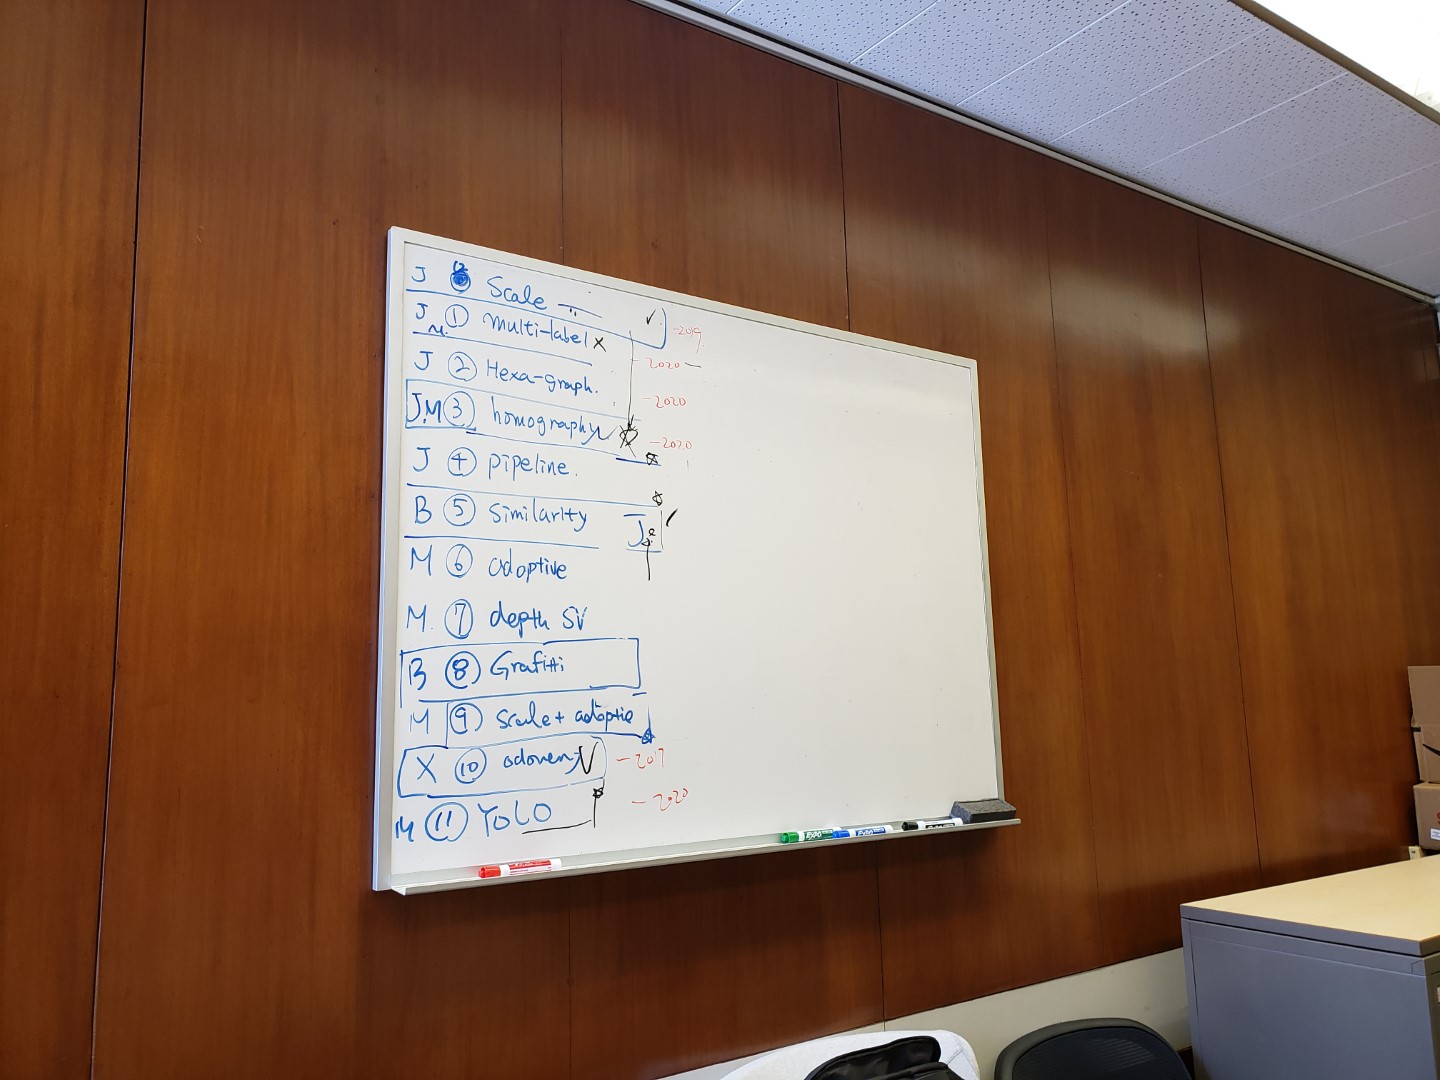 J 12 Scale
J M. 1 multi-label x -2019
J 2 Hexa-graph. -2020
J.M 3 homography -2020
-2020
J 4 pipeline.
B 5 Similarity J
M 6 adoptive
M. 7 depth SV
B 8 Grafitti
M 9 scale + adoptie
X 10 -2017
M 11 YOLO -2020
EXPO EXPO